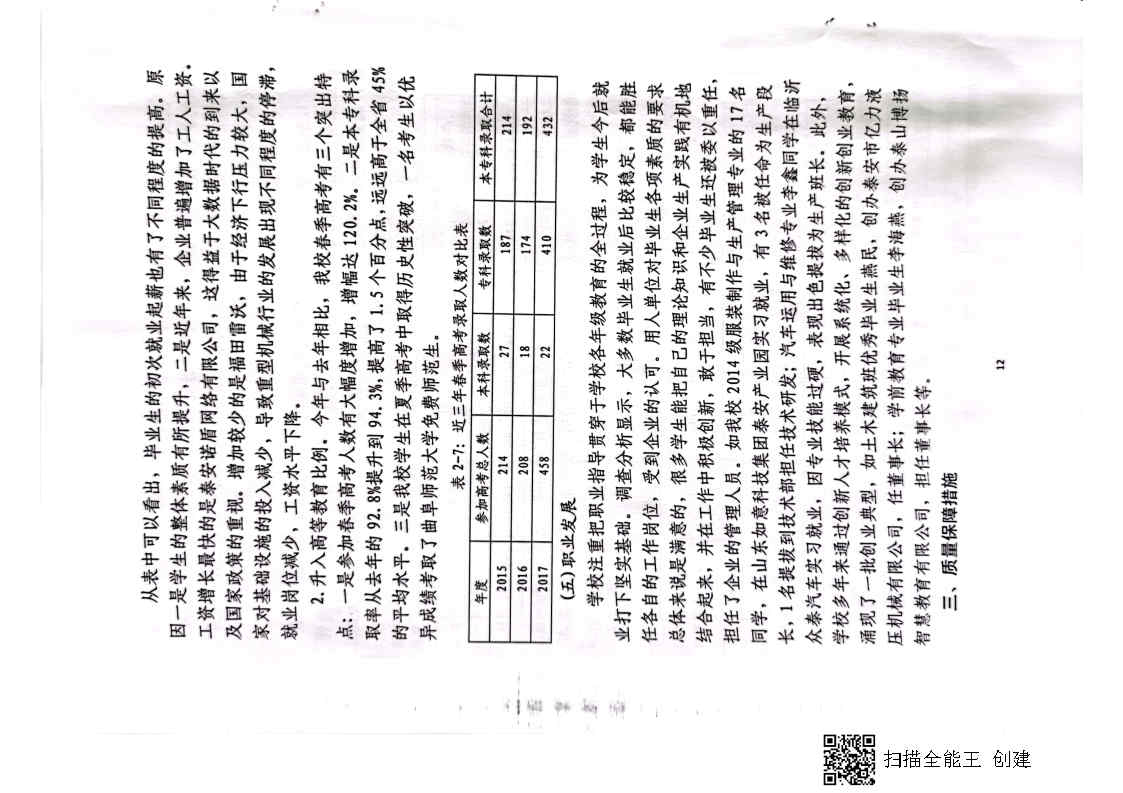 从表中可以看出，毕业生的初次就业起薪也有了不同程度的提高。原
因一是学生的整体素质有所提升，二是近年来，企业普遍增加了工人工资。
工资增长最快的是泰安诺盾网络有限公司，这得益于大数据时代的到来以
及国家政策的重视。增加较少的是福田雷沃，由于经济下行压力较大，国
家对基础设施的投入减少，导致重型机械行业的发展出现不同程度的停滞，
就业岗位减少，工资水平下降。
2.升入高等教育比例。今年与去年相比，我校春季高考有三个突出特
点：一是参加春季高考人数有大幅度增加，增幅达 120.2%。二是本专科录
取率从去年的 92.8%提升到 94.3%,提高了 1.5 个百分点,远远高于全省 45%
的平均水平。三是我校学生在夏季高考中取得历史性突破，一名考生以优
异成绩考取了曲阜师范大学免费师范生。
表 2-7：近三年春季高考录取人数对比表
年度 参加高考总人数 本科录取数 专科录取数 本专科录取合计
2015 214 27 187 214
2016 208 18 174 192
2017 458 22 410 432
(五)职业发展
学校注重把职业指导贯穿于学校各年级教育的全过程，为学生今后就
业打下坚实基础。调查分析显示，大多数毕业生就业后比较稳定，都能胜
任各自的工作岗位，受到企业的认可。用人单位对毕业生各项素质的要求
总体来说是满意的，很多学生能把自己的理论知识和企业生产实践有机地
结合起来，并在工作中积极创新，敢于担当，有不少毕业生还被委以重任，
担任了企业的管理人员。如我校 2014 级服装制作与生产管理专业的 17 名
同学，在山东如意科技集团泰安产业园实习就业，有 3 名被任命为生产段
长，1 名提拔到技术部担任技术研发；汽车运用与维修专业李鑫同学在临沂
众泰汽车实习就业，因专业技能过硬，表现出色提拔为生产班长。此外，
学校多年来通过创新人才培养模式，开展系统化、多样化的创新创业教育，
涌现了一批创业典型，如土木建筑班优秀毕业生燕民，创办泰安市亿力液
压机械有限公司，任董事长；学前教育专业毕业生李海燕，创办泰山博扬
智慧教育有限公司，担任董事长等。
三、质量保障措施
12
扫描全能王 创建